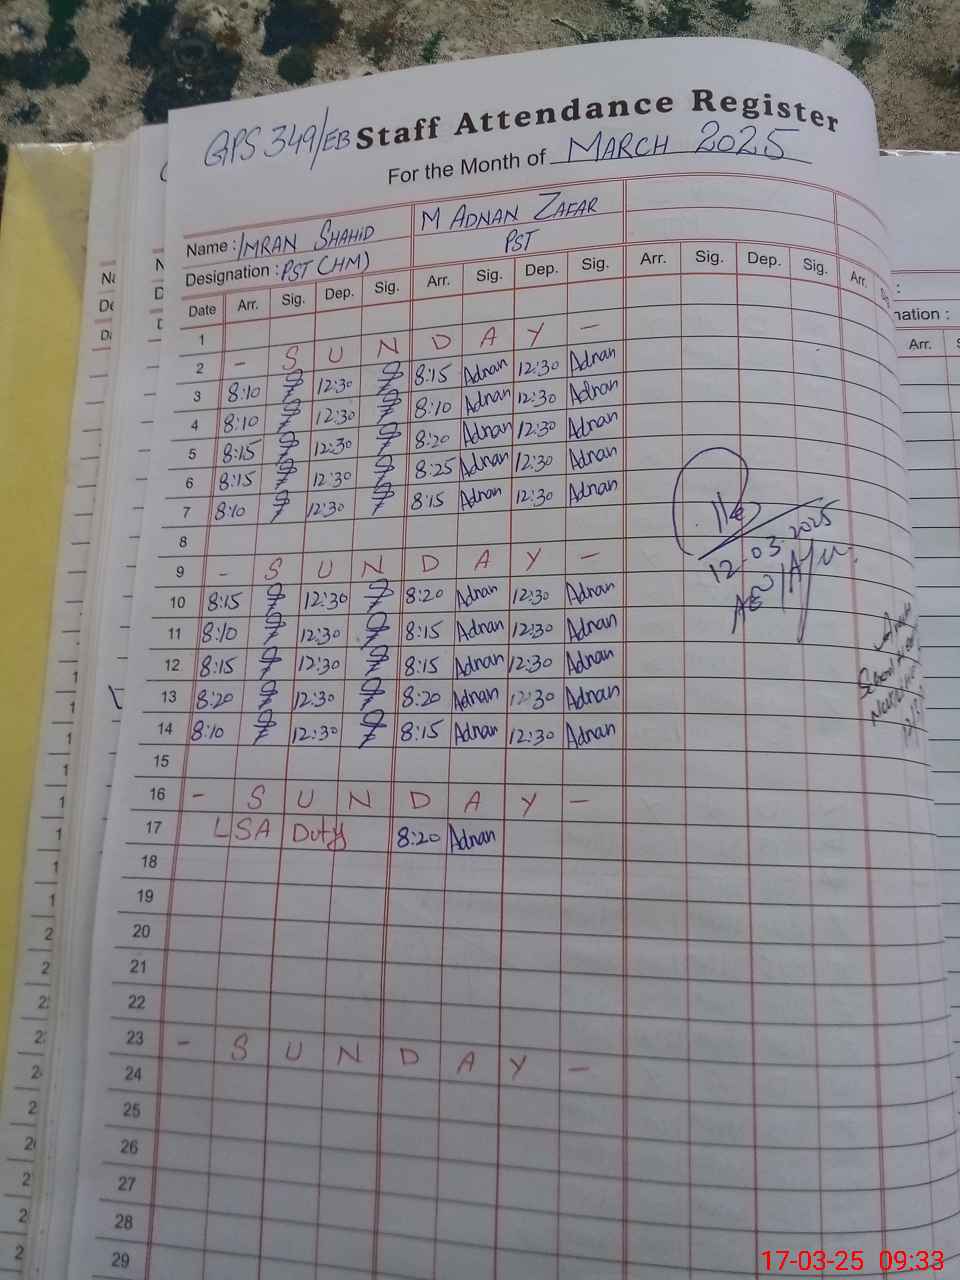 GPS 349/EB Staff Attendance Register
For the Month of MARCH 2025
Name : IMRAN SHAHID M ADNAN ZAFAR
Designation : PST (HM) PST
Date Arr. Sig. Dep. Sig. Arr. Sig. Dep. Sig. Arr. Sig. Dep. Sig. Arr.
1
2 - S U N D A Y -
3 8:10 12:30 8:15 Adnan 12:30 Adnan
4 8:10 12:30 8:10 Adnan 12:30 Adnan
5 8:15 12:30 8:20 Adnan 12:30 Adnan
6 8:15 12:30 8:25 Adnan 12:30 Adnan
7 8:10 12:30 8:15 Adnan 12:30 Adnan
8
9 - S U N D A Y -
10 8:15 12:30 8:20 Adnan 12:30 Adnan
11 8:10 12:30 8:15 Adnan 12:30 Adnan
12 8:15 12:30 8:15 Adnan 12:30 Adnan
13 8:20 12:30 8:20 Adnan 12:30 Adnan
14 8:10 12:30 8:15 Adnan 12:30 Adnan
15
16 - S U N D A Y -
17 LSA Duty 8:20 Adnan
18
19
20
21
22
23 - S U N D A Y -
24
25
26
27
28
29
12-03-2025
nation :
Arr.
17-03-25 09:33